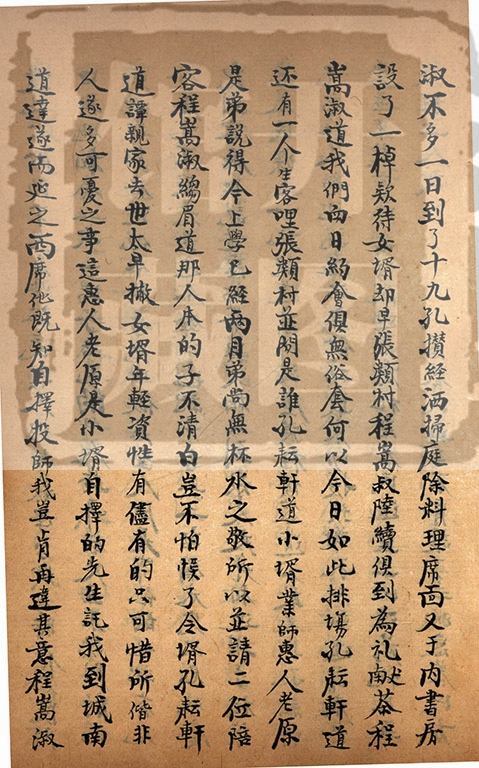 淑不多一日到了十九孔攢経洒掃庭除料理席面又于内書房
設了一棹欵待女壻却早張類村程嵩叔陸續俱到為礼献茶程
嵩淑道我們兩日約會俱無俗套何以今日如此排塲孔耘軒道
还有一个生客哩張類村並問是誰孔耘軒道小壻業師惠人老原
是弟說得今上學已經兩月弟尚無杯水之敬所以並請二位陪
客程嵩淑縐眉道那人本的子不清白豈不怕悮了令壻孔耘軒
道譚親家去世太早撇女壻年輕資性有儘有的只可惜所偕非
人遂多可憂之事這惠人老原是小壻自擇的先生託我到城南
道達遂而延之西席他既知自擇投師我豈肯再違其意程嵩淑